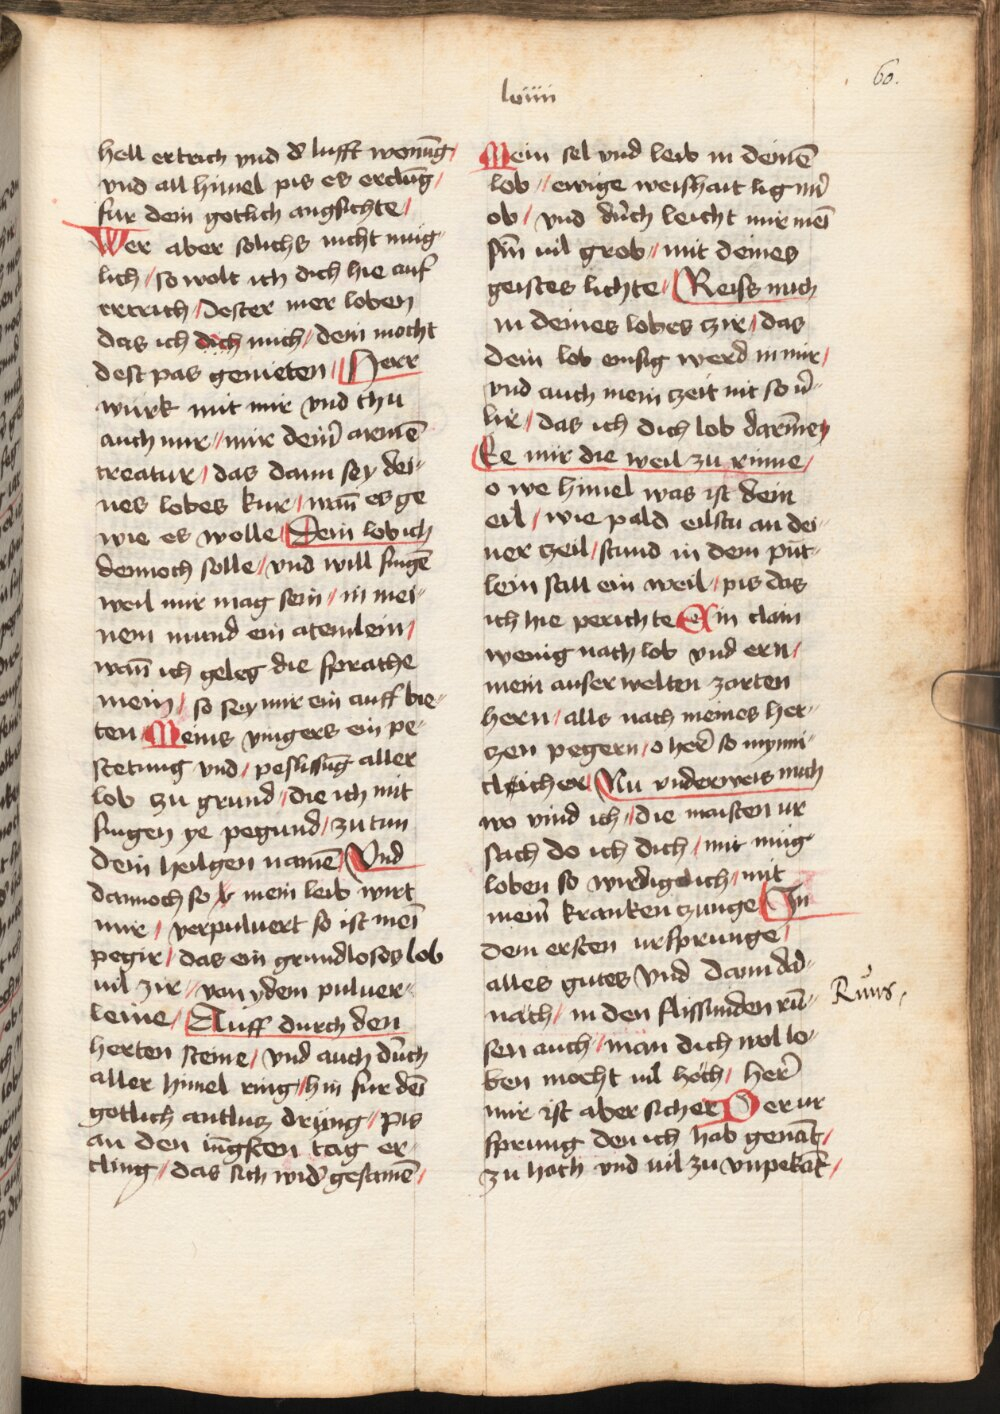 60.
lviiii
hell ertrich vnd d' lufft wonūg/
vnd all himel pis es erclūg/
fur dein gotlich angsichte/
Wer aber solichs nicht mug-
lich/ so wolt ich dich hie auf
ertrich/ Dester mer loben
das ich dich mich/ dein mocht
dest pas genieten// Herr
wurk mit mir vnd thu
auch nur// mir dein' armē
creatur/ das dann sey dei-
nes lobes kur/ wan̄ es ge
wie es wolle/ Dein lob ich
dennoch solle/ vnd will singē
weil mir mag sein// in mei-
nem mund ein atemlein/
wan̄ ich geleg die sprache
mein/ so sey mir ein auff bie-
ten/ Meins vingers ein pe-
stetung vnd/ peslissūg aller
lob zu grund/ die ich mit
singen ye pegund/ zu tun
dem heilgen namē/ Vnd
dannoch so mein leib wirt
mir/ verpuluert so ist mei
pegir/ das ein grundloses lob
uil zir// von ydem puluer-
leine/ Auff durch den
herten steine/ vnd auch durch
aller himel ring/ hin fur dēs
gotlich antlutz dring/ pis
an den iūgsten tag er-
cling/ das sich wid' gesamē/
Mein sel vnd leib in deinē
lob// ewige weishait lig mir
ob/ vnd durch leicht mir mei
sin̄ uil grob// mit deines
geistes lichte/ Reiss mich
in deines lobes zir/ das
dein lob einsig werd in mir/
vnd auch mein zeit nit so v'-
lir/ das ich dich lob darīnen
Ee mir die weil zu rinne/
o we himel was ist dein
eil/ wie pald eilstu an dei-
ner zeil/ stand in dem pūt-
lein stall ein weil/ pis das
ich hie perichte/ Ein clain
wenig nach lob vnd ern/
mein auserwelten zarten
hern/ alls nach meines her-
zen pegern/ o her' so mynni-
cleicher/ Nu vnderweis mich
wo vind ich/ die maisten ur
sach do ich dich/ mit mug
loben so wirdigclich/ mit
mein' kranken czunge/ In
dem ersten ursprunge/
alles gutes vnd dann dar-
nach/ in den flissunden rū-
sen auch/ man dich wol lo-
ben mocht uil hoch/ her'
mir ist aber sicher/ Der ur
sprung den ich hab genāt/
zu hoch vnd uil zu vnpekāt/
Runs,